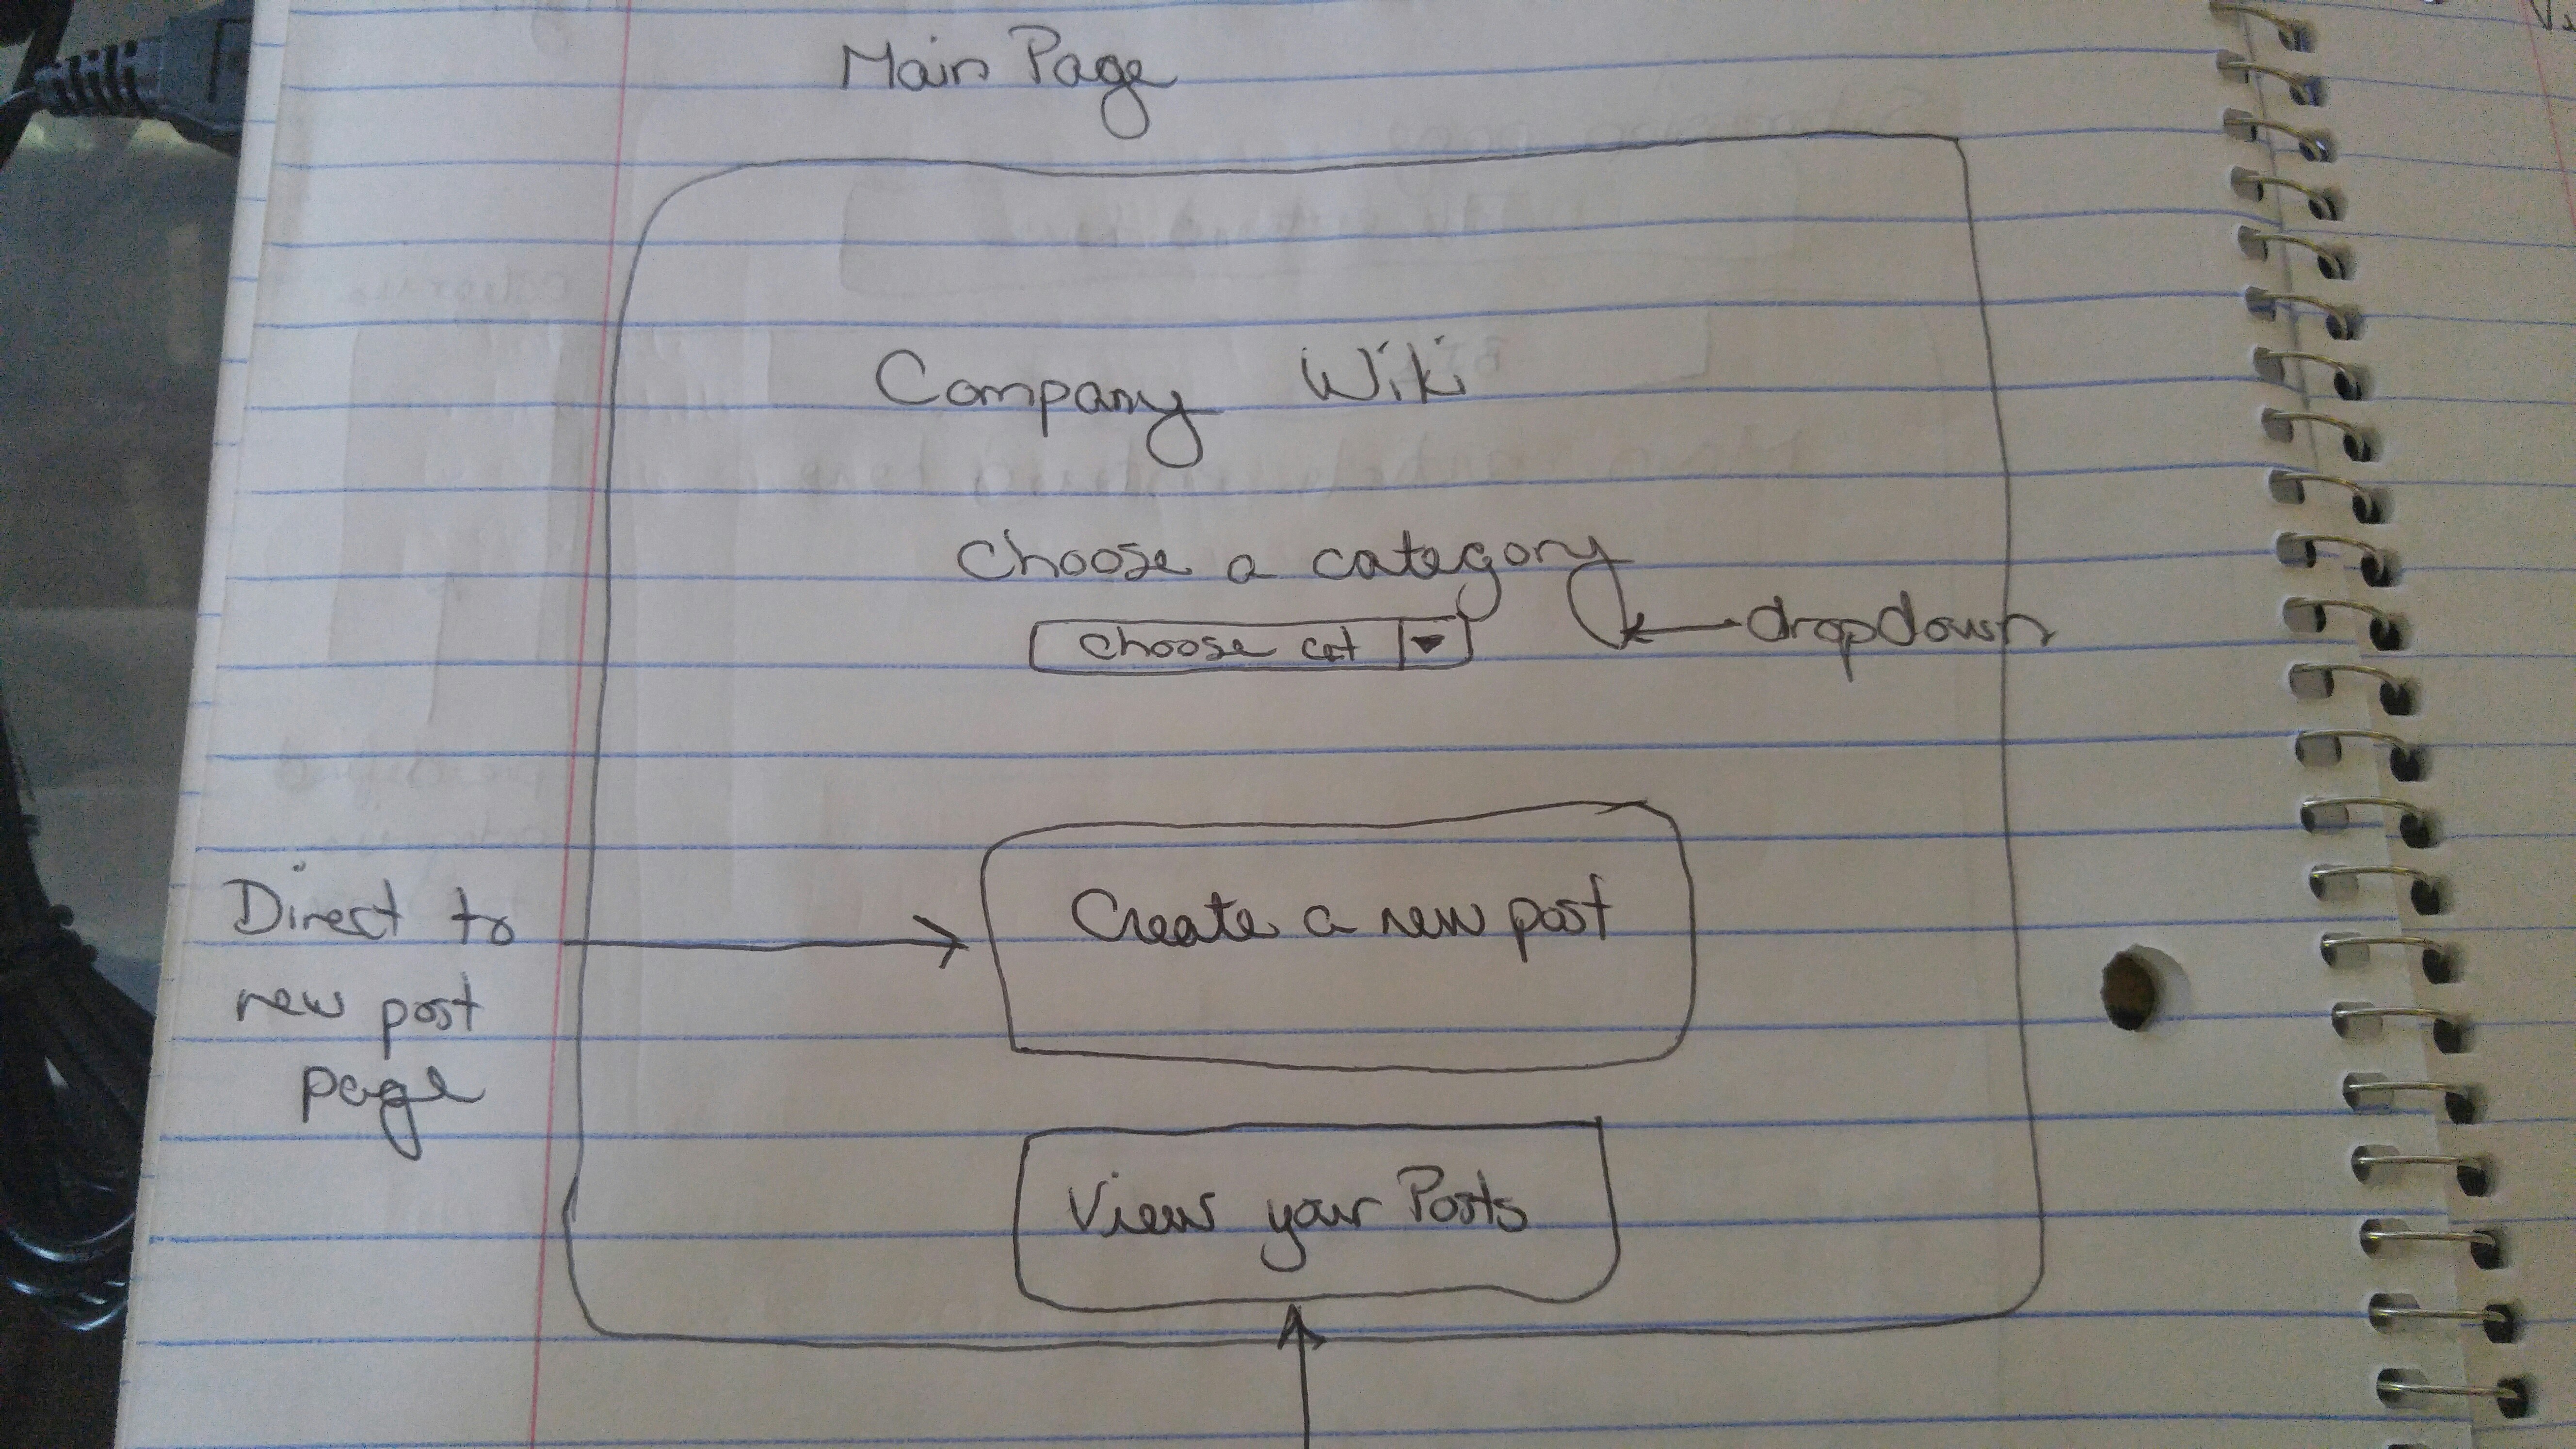 Main Page
Company Wiki
Choose a category
choose cat
dropdown
Direct to
new post
page
Create a new post
View your Posts